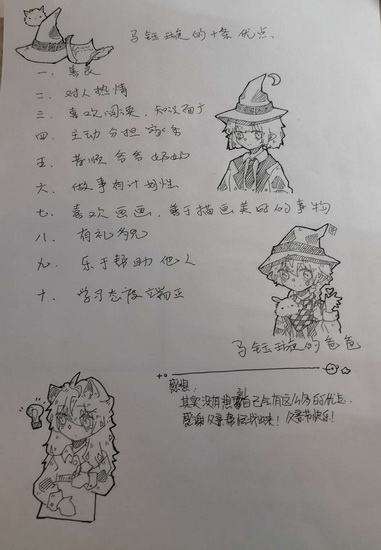 马钰琁的十条优点。
一、善良
二、对人热情
三、喜欢阅读，知识面广
四、主动分担家务
五、孝顺爷爷奶奶
六、做事有计划性
七、喜欢画画，善于描画美好的事物
八、有礼貌
九、乐于帮助他人
十、学习态度端正
马钰琁的爸爸
感想：
其实没有想到自己会有这么多的优点。
感谢父亲帮我找出来！父亲节快乐！